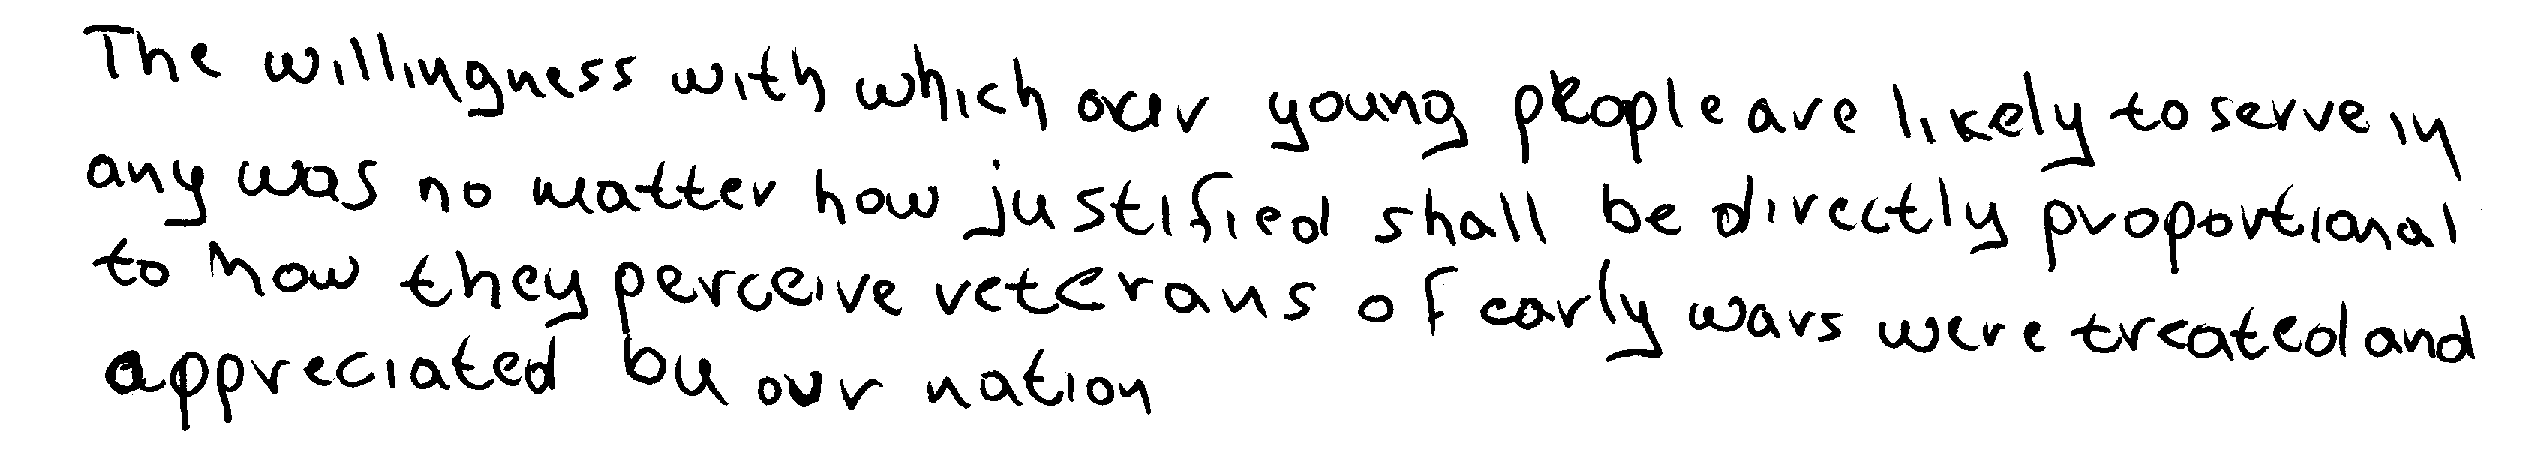 The willingness with which our young people are likely to serve in
any was no matter how justified shall be directly proportional
to how they perceive veterans of early wars were treated and
appreciated bu our nation